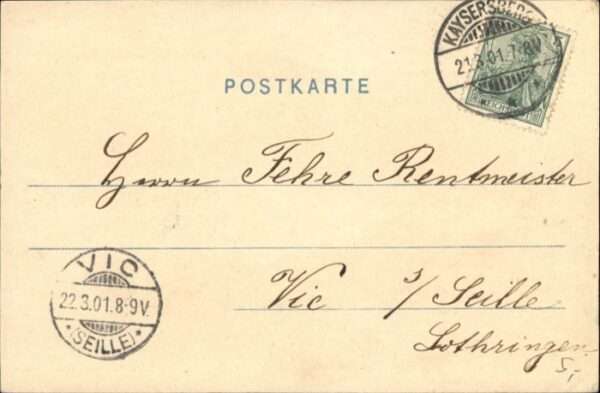 KAYSERSBERG
21.3.01.7-8V.
POSTKARTE
Herrn Fehre Rentmeister
VIC
22.3.01.8-9V.
*(SEILLE)*
Vic s/Seille
Lothringen
5,-